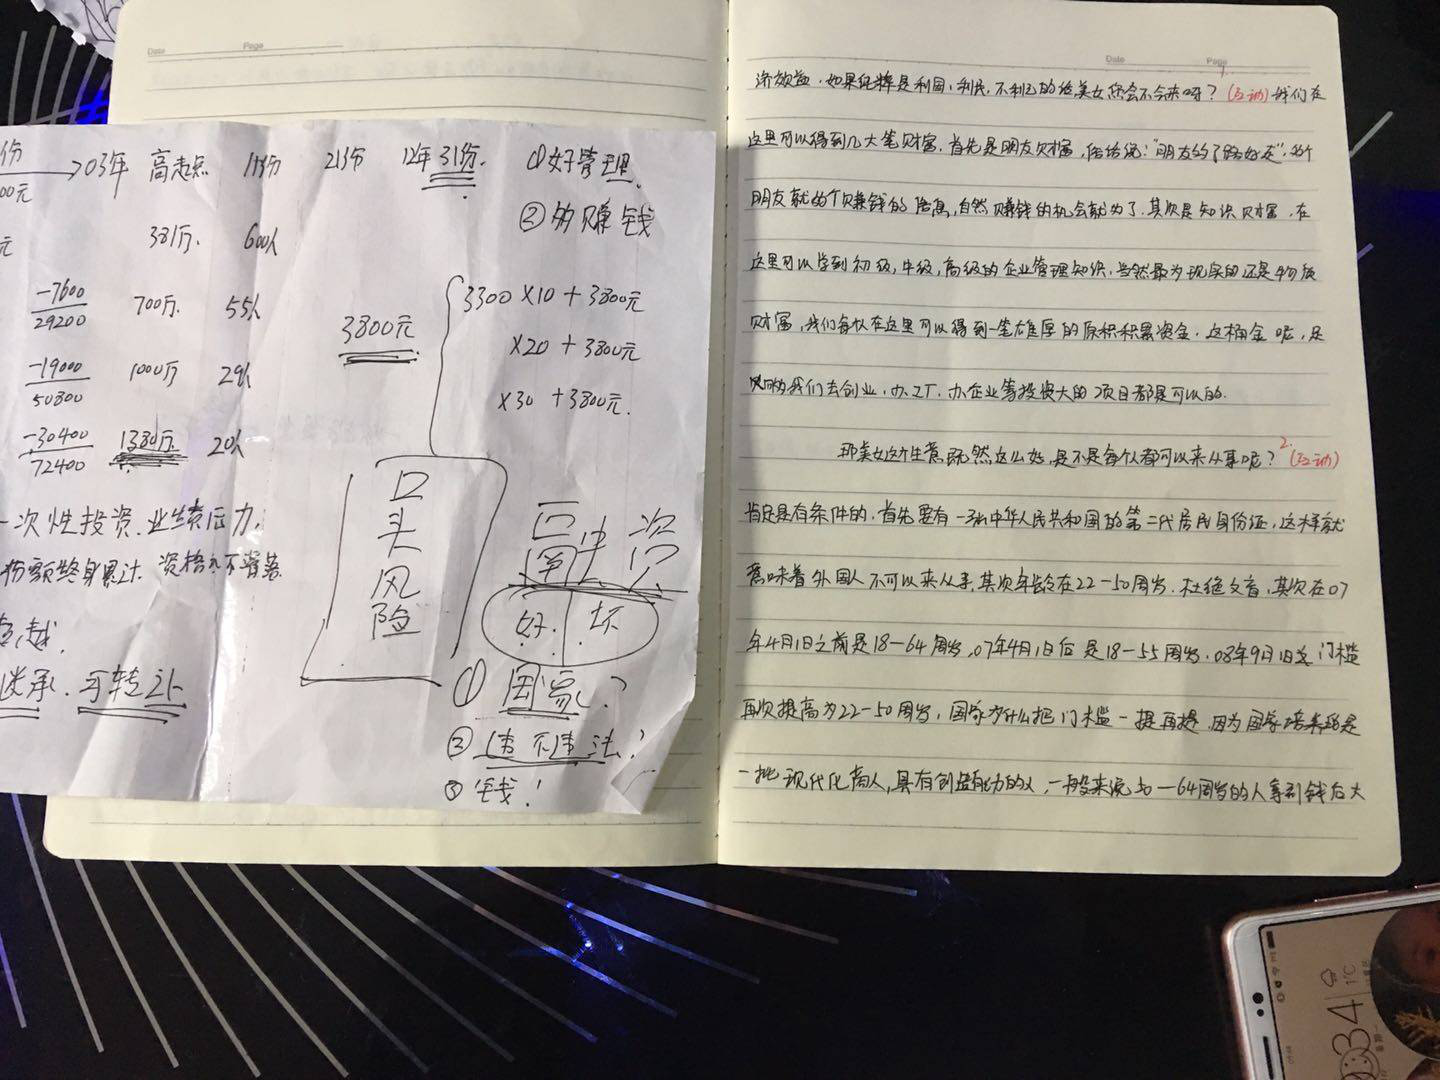 Date Page
份 →03年 高起点 11份 21份 12年 31份. ①好管理
00元
②多赚钱
元 381万. 600人
-7600
29200 700万. 55人
3800元
3300×10+3800元
×20+3800元
×30+3800元.
-19000
50800 1000万 29人
-30400
72400 1380万. 20人
一次性投资.业绩压力.
份额终身累计. 资格永不消落.
超越.
继承.可转让
口头风险
好 坏
① 国家?
② 违不违法?
③ 钱!
Date Page
济效益.如果纯粹是利国,利民,不利己的话美女您会不会来呀? 1. (互动) 我们在
这里可以得到几大笔财富.首先是朋友财富,俗话说:"朋友多了路好走",多个
朋友就多个赚钱的信息,自然赚钱的机会就多了.其次是知识财富,在
这里可以学到初级,中级,高级的企业管理知识.当然最为现实的还是物质
财富,我们每个人在这里可以得到一笔雄厚的原积积累资金.这桶金呢,足
以够我们去创业,办工厂.办企业等投资大的项目都是可以的.
那美女这个生意既然这么好,是不是每个人都可以来从事呢? 2. (互动)
肯定是有条件的.首先要有一张中华人民共和国的第二代居民身份证,这样就
意味着外国人不可以来从事.其次年龄在22-50周岁.杜绝文盲,其次在07
年4月1日之前是18-64周岁,07年4月1日后是18-55周岁.08年9月1日 门槛
再次提高为22-50周岁,国家为什么把门槛一提再提,因为国家培养的是
一批现代化商人,具有创造能力的人,一般来说 64周岁的人拿到钱后大
34
1°C